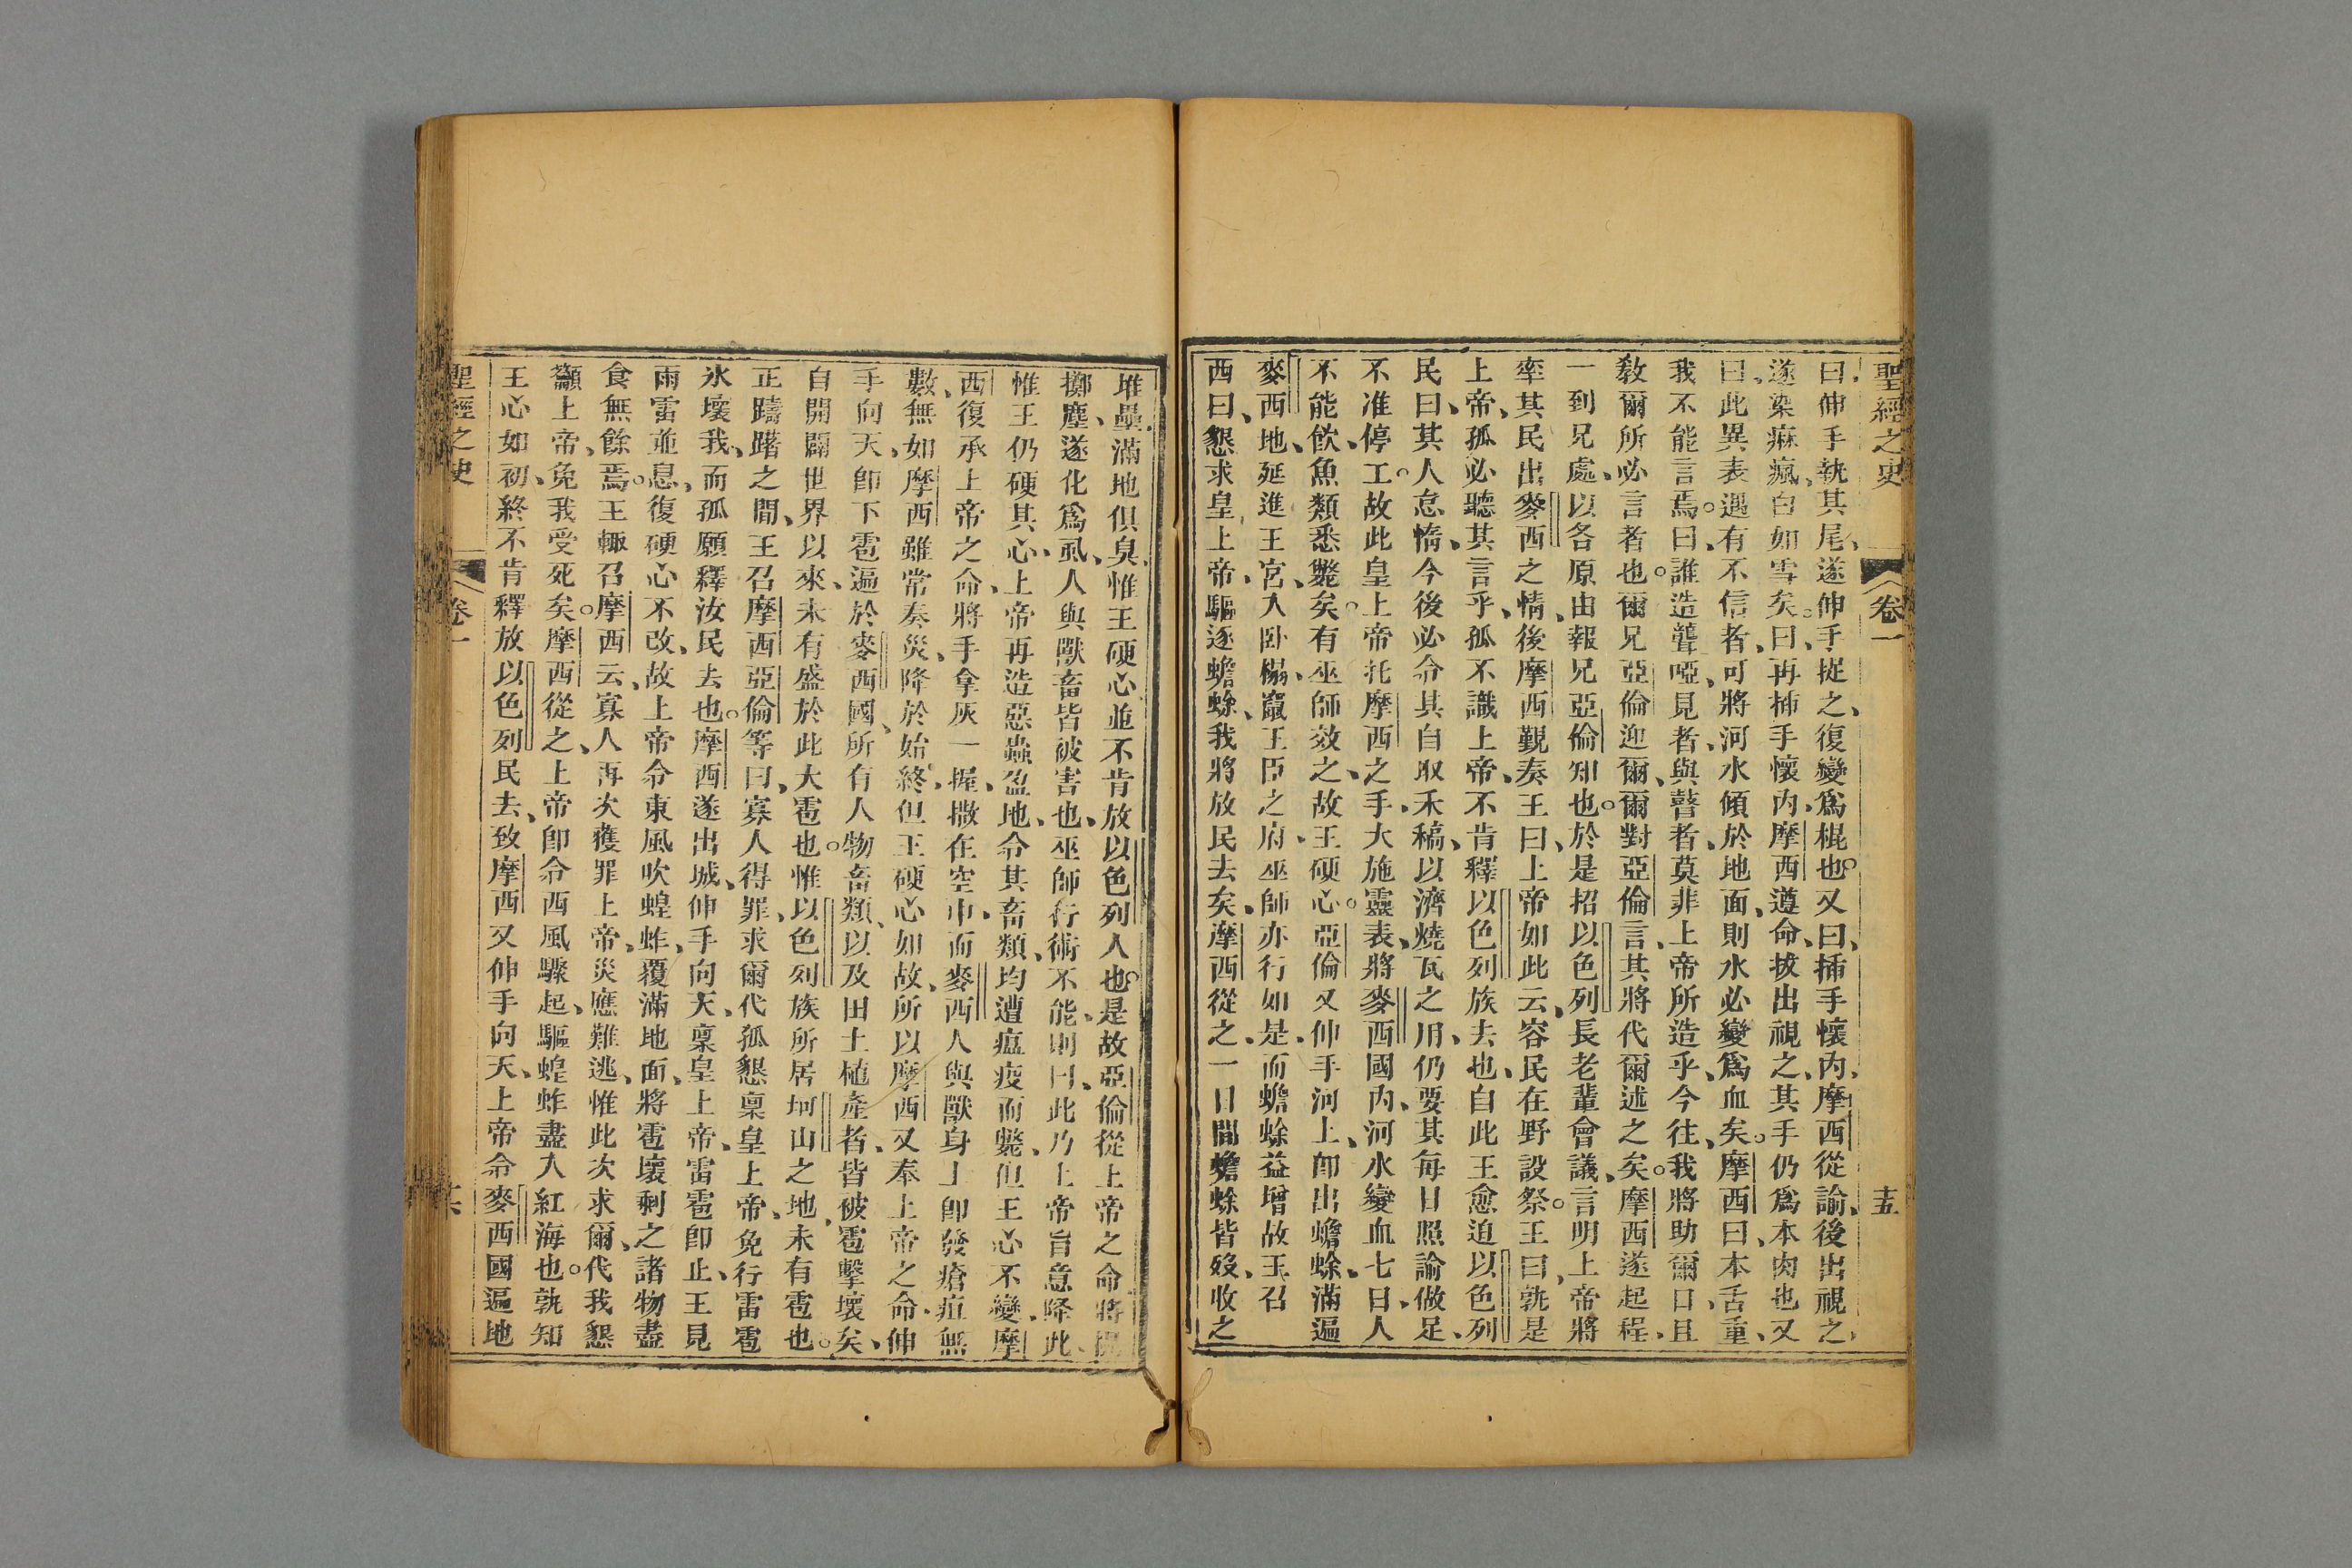 聖經之史 卷一 十五
曰、伸手執其尾、遂伸手捉之、復變爲棍也。又曰、插手懷內、摩西從諭、後出視之、
遂染痳瘋、白如雪矣。曰、再插手懷內、摩西遵命、拔出視之、其手仍爲本肉也又
曰、此異表遇有不信者、可將河水傾於地面、則水必變爲血矣。摩西曰、本舌重、
我不能言焉。曰、誰造聾啞、見者、與瞽者、莫非上帝所造乎、今往、我將助爾口、且
敎爾所必言者也。爾兄亞倫迎爾、爾對亞倫言、其將代爾述之矣。摩西遂起程、
一到兄處、以各原由報兄亞倫知也。於是招以色列長老輩會議、言明上帝將
率其民出麥西之情、後摩西覲奏王曰、上帝如此云、容民在野設祭。王曰、孰是
上帝、孤必聽其言乎、孤不識上帝、不肯釋以色列族去也、自此王愈迫以色列
民曰、其人怠惰、今後必令其自取禾稿、以濟燒瓦之用、仍要其每日照諭做足、
不准停工。故此皇上帝托摩西之手、大施靈表、將麥西國內、河水變血七日、人
不能飲、魚類悉斃矣。有巫師效之、故王硬心。亞倫又伸手河上、卽出蟾蜍、滿遍
麥西地、延進王宮、入卧榻、竄王臣之府、巫師亦行如是、而蟾蜍益增故王召
西曰、懇求皇上帝、驅逐蟾蜍、我將放民去矣、摩西從之、一日間蟾蜍皆歿、收之
堆壘、滿地俱臭、惟王硬心並不肯放以色列人也。是故亞倫從上帝之命將
擲塵、遂化爲虱、人與獸畜皆被害也、巫師行術不能、則曰、此乃上帝旨意降此、
惟王仍硬其心、上帝再造惡蟲盈地、令其畜類、均遭瘟疫而斃、但王心不變、摩
西復承上帝之命、將手拿灰一握、撒在空中、而麥西人與獸身上卽發瘡疽無
數、無如摩西雖常奏災、降於始終、但王硬心如故、所以摩西又奉上帝之命、伸
手向天、卽下雹遍於麥西國、所有人物畜類、以及田土植產者、皆被雹擊壞矣、
自開闢世界以來、未有盛於此大雹也。惟以色列族所居坷山之地、未有雹也。
正躊躇之間、王召摩西亞倫等曰、寡人得罪、求爾代孤懇稟皇上帝、免行雷雹
氷壞我、而孤願釋汝民去也。摩西遂出城、伸手向天、稟皇上帝、雷雹卽止、王見
雨雷並息、復硬心不改、故上帝令東風吹蝗蚱、覆滿地面、將雹壞剩之諸物盡
食無餘焉。王輙召摩西云、寡人再次獲罪上帝、災應難逃、惟此次求爾、代我懇
籲上帝、免我受死矣。摩西從之、上帝卽令西風驟起、驅蝗蚱盡入紅海也。孰知
王心如初、終不肯釋放以色列民去、致摩西又伸手向天、上帝令麥西國遍地
聖經之史 卷一